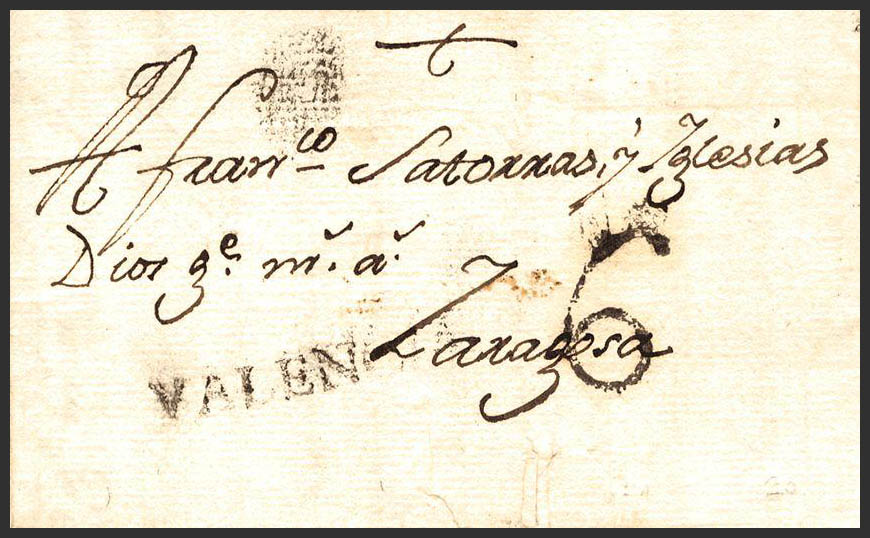 A Fran.co Satorras, y Yglesias
Dios g.e m.s a.s
6
Zaragosa
VALEN